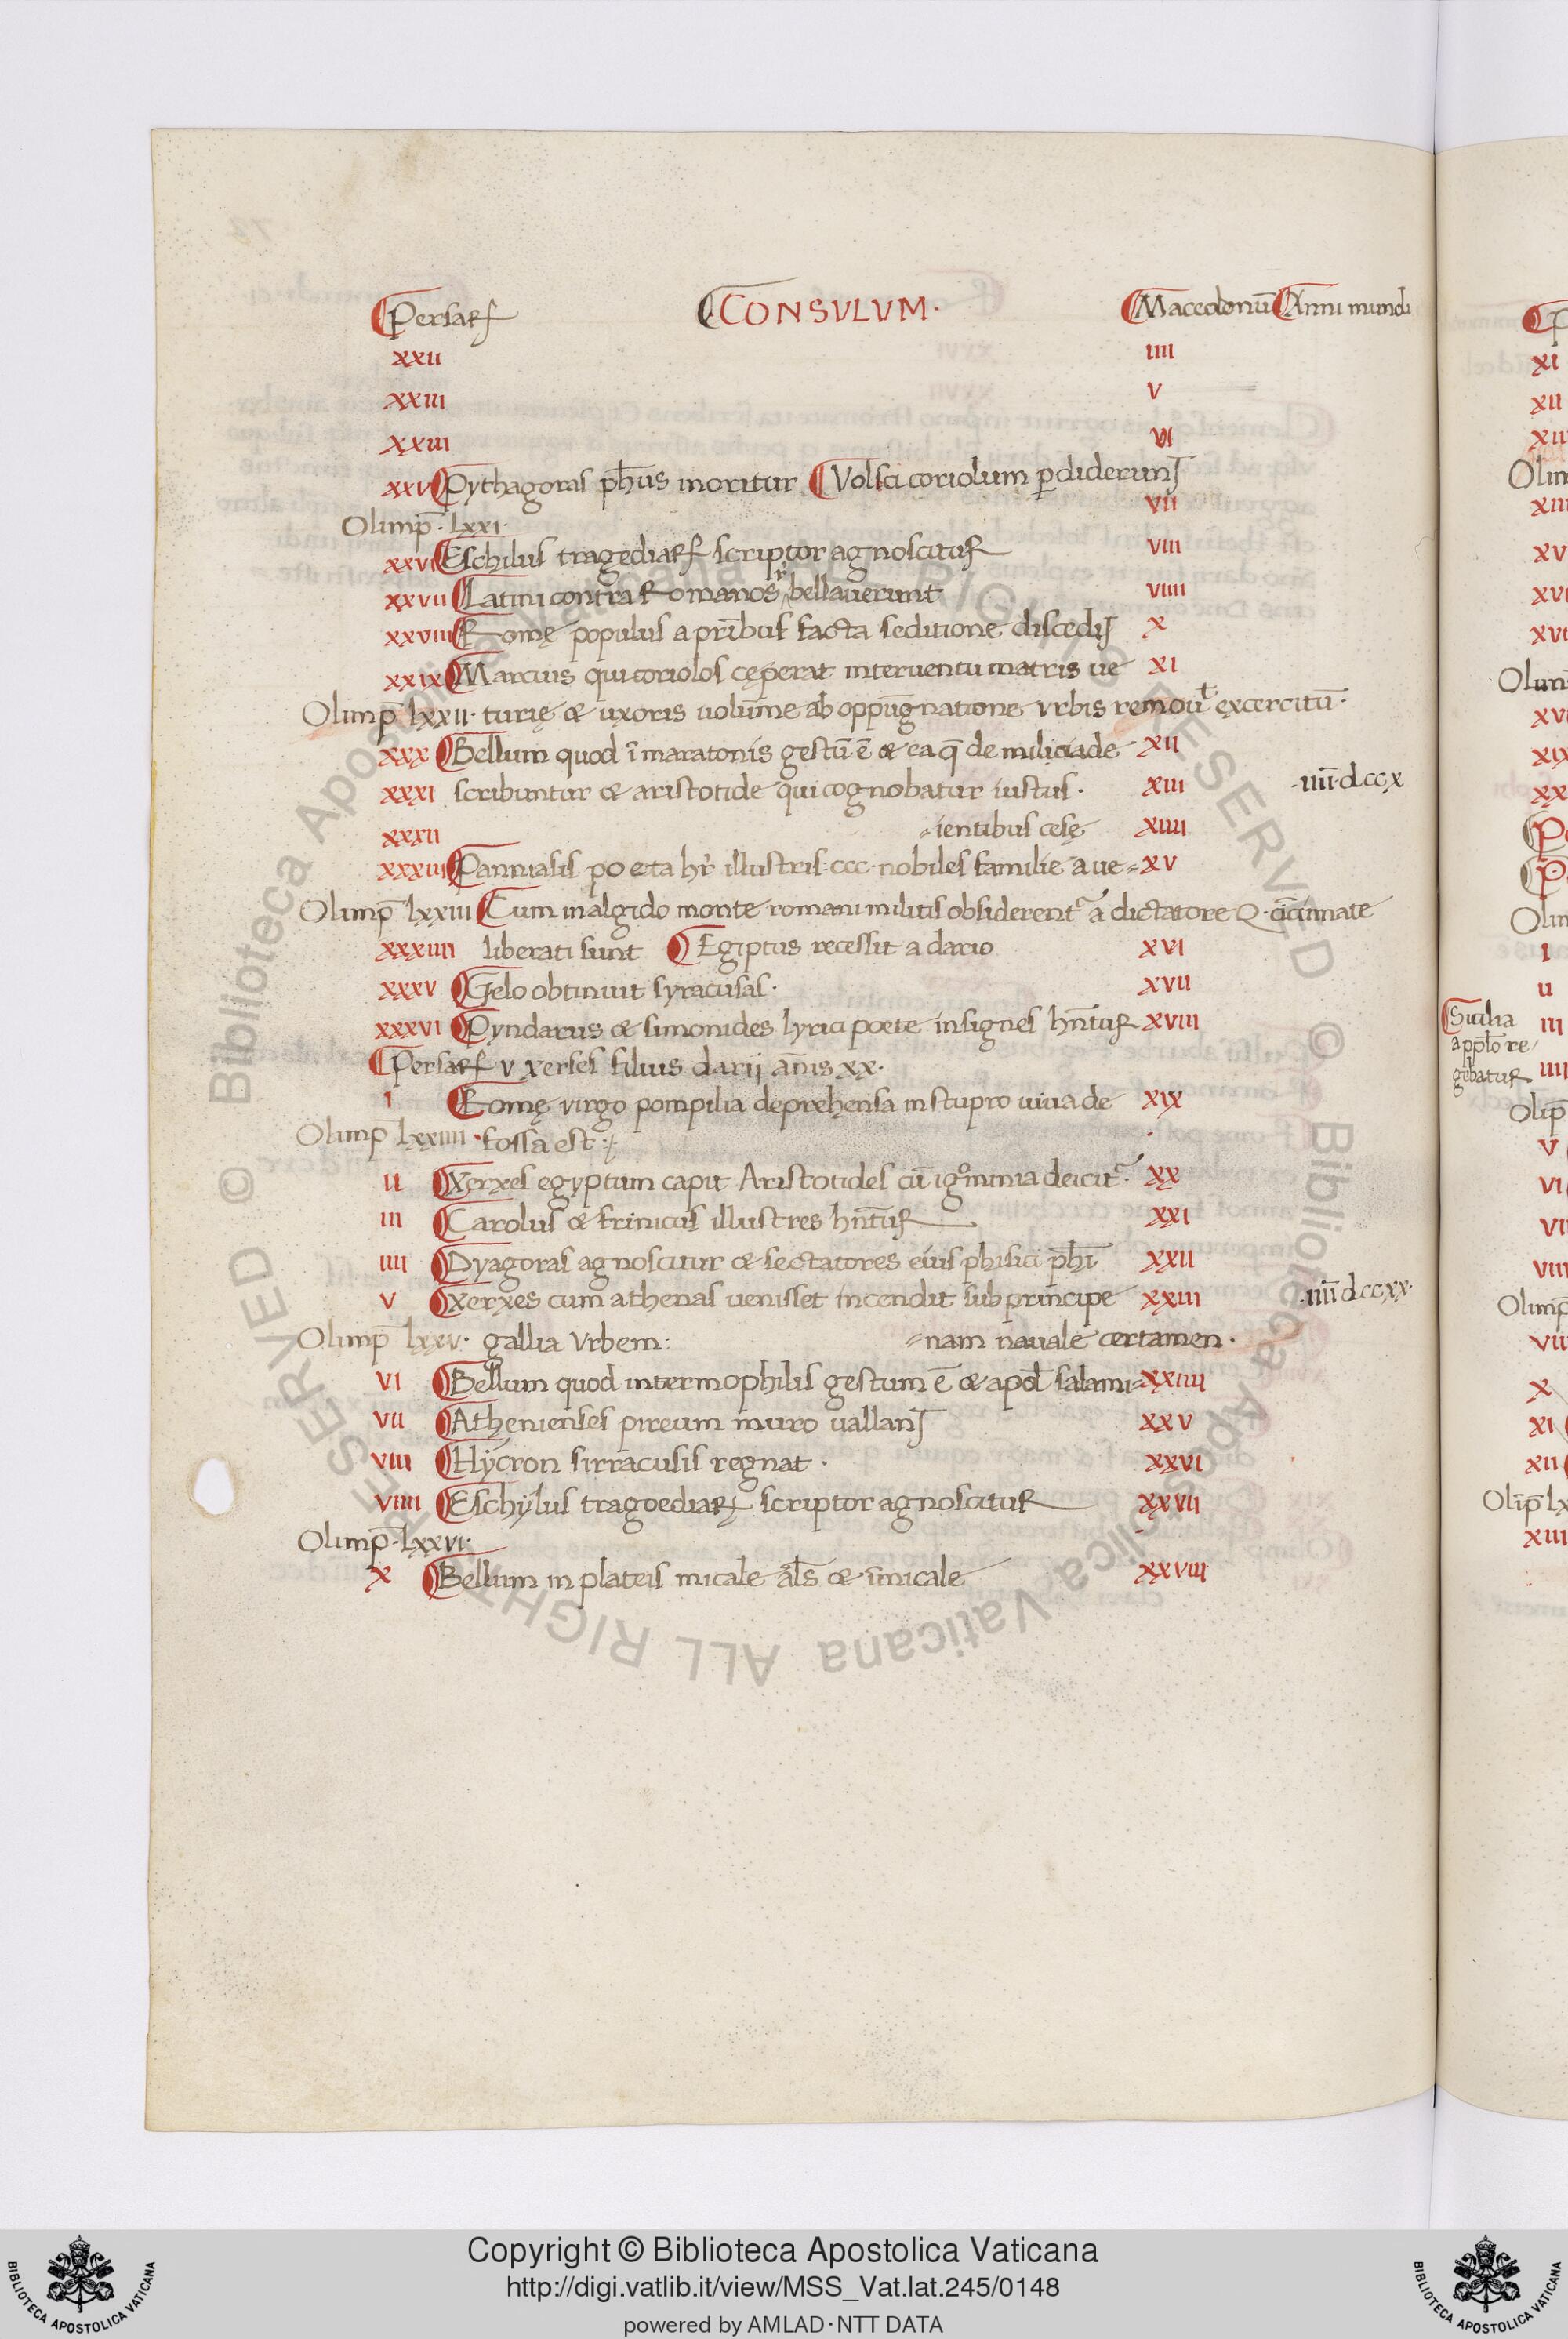 Persaꝝ CONSULUM· Macedonū Anni mundi
xxii iiii
xxiii v
xxiiii vi
xxv Pythagoras ph̄us moritur Volsci coriolum ꝑdiderunt
vii
Olimp̄· lxxi·
xxvi Eschilus tragediaꝝ scriptor agnoscitur viii
xxvii Latini contra Romanos rebellaverunt viiii
xxviii Romę populus a pr̄ibus facta seditione discedit x
xxix Marcius qui coriolos cęperat interuentu matris ue xi
Olimp̄ lxxii· turię & uxoris uolum̄e ab oppūgnatione urbis remou͛t excercitū·
xxx Bellum quod ī maratonis gestū ē & ea q̄ de miliciade xii
xxxi scribuntur & aristotide qui cognobatur iustus· xiii ·iiii·dccx
xxxii ientibus cesę xiiii
xxxiii Panniasis poeta hr̄ illustris·ccc·nobiles familie a ue= xv
Olimp̄ lxxiii Cum in algido monte romani militis obsiderent᷑ a dictatore Q·cīcinnate
xxxiiii liberati sunt Egiptus recessit a dario xvi
xxxv Gelo obtinuit syracusas· xvii
xxxvi Pyndarus & simonides lyrici poete insignes hn̄tur xviii
Persaꝝ v xerses filius darij an̄is xx·
i Romę virgo pompilia deprehensa in stupro uiua de xix
Olimp̄ lxxiiii ·fossa est:
ii Xerxes egyptum capit Aristotides cū ignominia deicit᷑· xx
iii Carolus & frinicus illustres hn̄tur xxi
iiii Dyagoras agnoscitur & sectatores eius phisici ph̄i xxii
v Xerxes cum athenas uenisset incendit sub principe xxiii ·iiii dccxx·
Olimp̄ lxxv· gallia Urbem: =nam nauale certamen·
vi Bellum quod intermophilis gestum ē & apd̄ salami= xxiiii
vii Athenienses pireum muro uallant xxv
viii Hycron sirracusis regnat· xxvi
viiii Eschylus tragoediaꝝ scriptor agnoscitur xxvii
Olimp̄·lxxvi·
x Bellum in plateis micale al̄s & īmicale xxviii
xi
xii
Olim
xv
xvi
xix
Olin
i
ii
Sicilia iii
a pp̄lo re
gebatur iiii
Olip̄
v
vi
viii
Olimp̄
x
xi
xii
Olip̄ lx
xiii
© Biblioteca Apostolica Vaticana ALL RIGHTS RESERVED © Biblioteca Apostolica Vaticana ALL RIGHTS RESERVED
Copyright © Biblioteca Apostolica Vaticana
http://digi.vatlib.it/view/MSS_Vat.lat.245/0148
powered by AMLAD·NTT DATA
BIBLIOTECA APOSTOLICA VATICANA
BIBLIOTECA APOSTOLICA VATICANA